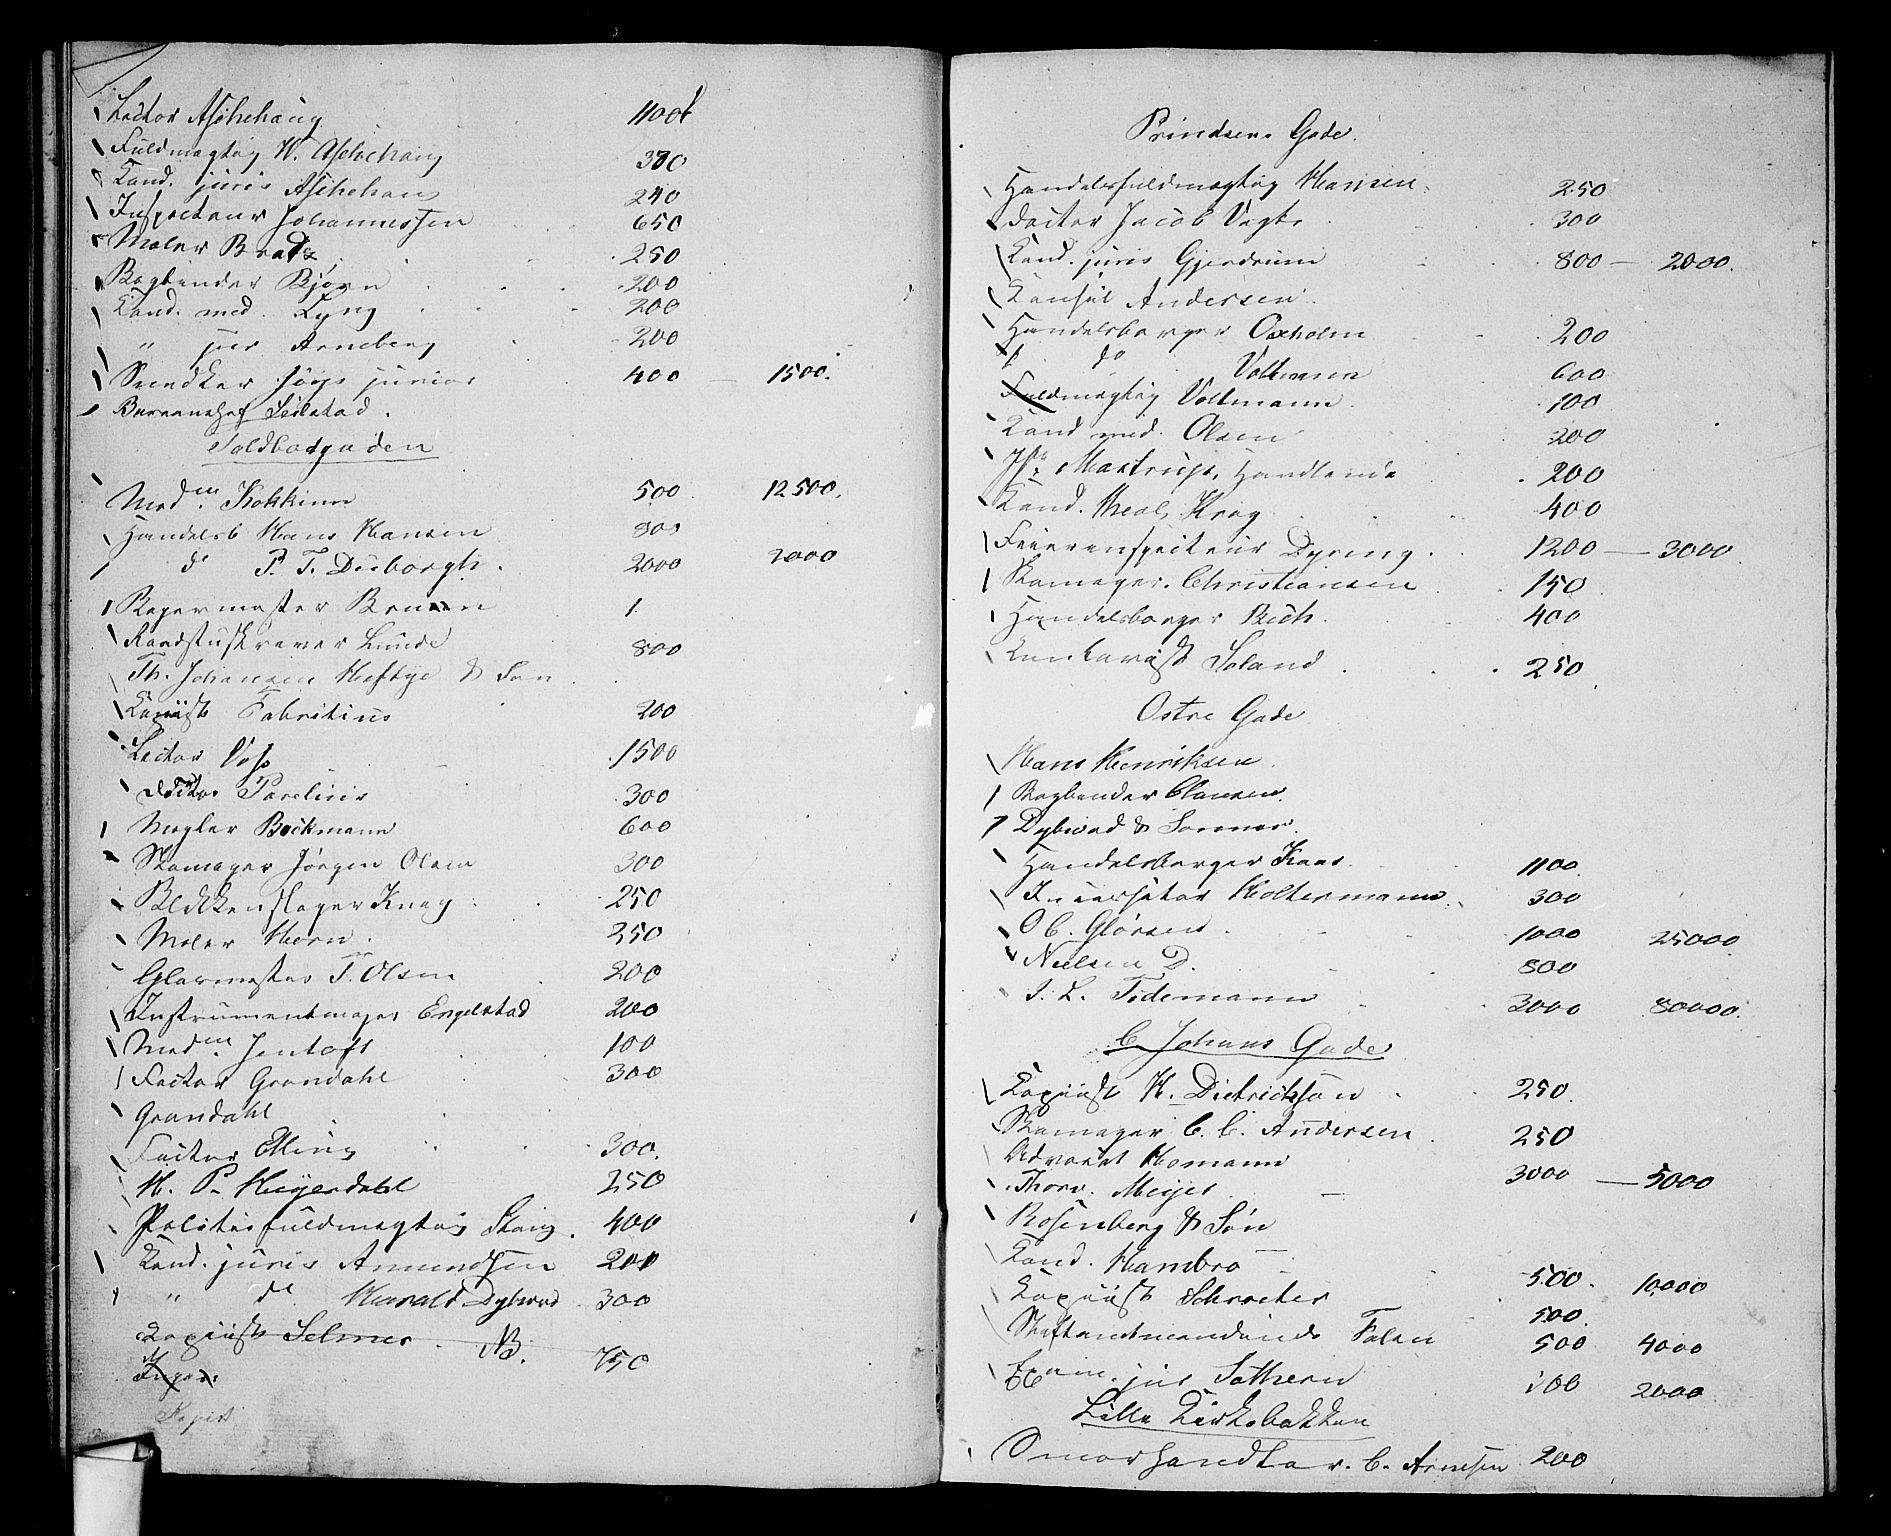 Lector Aschehoug 1100
Fuldmægtig H. Aschehoug 300
Cand. juris Aschehoug 240
Inspecteur Johannessen 650
Maler Brode 250
Bogbinder Bjørn 200
Cand. med. Lyng 200
" jur Arneberg 200
Snedker junior 400 1500.
Seilstad.
Toldbodgaden
Mad.m 500. 12500.
Handelsb Hans Hansen 800
do P. T. Duborgh. 2000 2000
Bagermester Bruun 1.
Raadstuskriver Lunde 800
Th. Johansen Heftye & Søn
Copiist Fabritius 200
Lector Voss 1500
Doctor 300
Mægler Bockmann 600
Skomager Jørgen Olsen 300
Blikkenslager Krag 250
Maler Horn. 250
Glarmester T. Olsen 200
Instrumentmager Engelstad 200
Mad.m Jentoft 100
Factor Grøndahl 300
Grøndahl
Factor Elling 300.
H. P. Heyerdahl 250
Politiefuldmægtig 400
Cand. juris Amundsen 200
" do Harald Dybwad 300
Copiist Selmer NB. 750
Kopist
Prindsens Gade.
Handelsfuldmægtig Hansen. 250
Doctor Jacob Vogt 300
Cand. juris Gjerdrum 800 — 2000.
Consul Andersen.
Handelsborger Oxholm 200
do Voltmann 600
Fuldmægtig Voltmann 100
Cand med. Olsen 200
Mastrup, Handlende 200
Cand. theol. Krag 400
Feierinspecteur Dyring. 1200 — 3000.
Skomager Christiansen 150
Handelsborger Bich. 400
Soland 250
Østre Gade
Hans Henriksen.
Bogbinder Clausen.
Dybwad & Sønner.
Handelsborger Kaas. 1100.
Holtermann 300
O C. Glørsen. 1000 25000.
Nielsen D. 800
J. L. Tidemann 3000 80000.
C Johans Gade
Copiist H. Dietrichson 250.
Skomager C. C. Andersen. 250
Advocat Homann 3000 — 5000
Thorv. Meyer
Rosenberg & Søn
Cand. Hambro 500. 10,000
Copiist Schroeter 500.
Stiftamtmandinde Falsen 500 4000
Exam. jur Sothern 2000
Lille Kirkebakken
Smørhandler. C. Arnesen 200